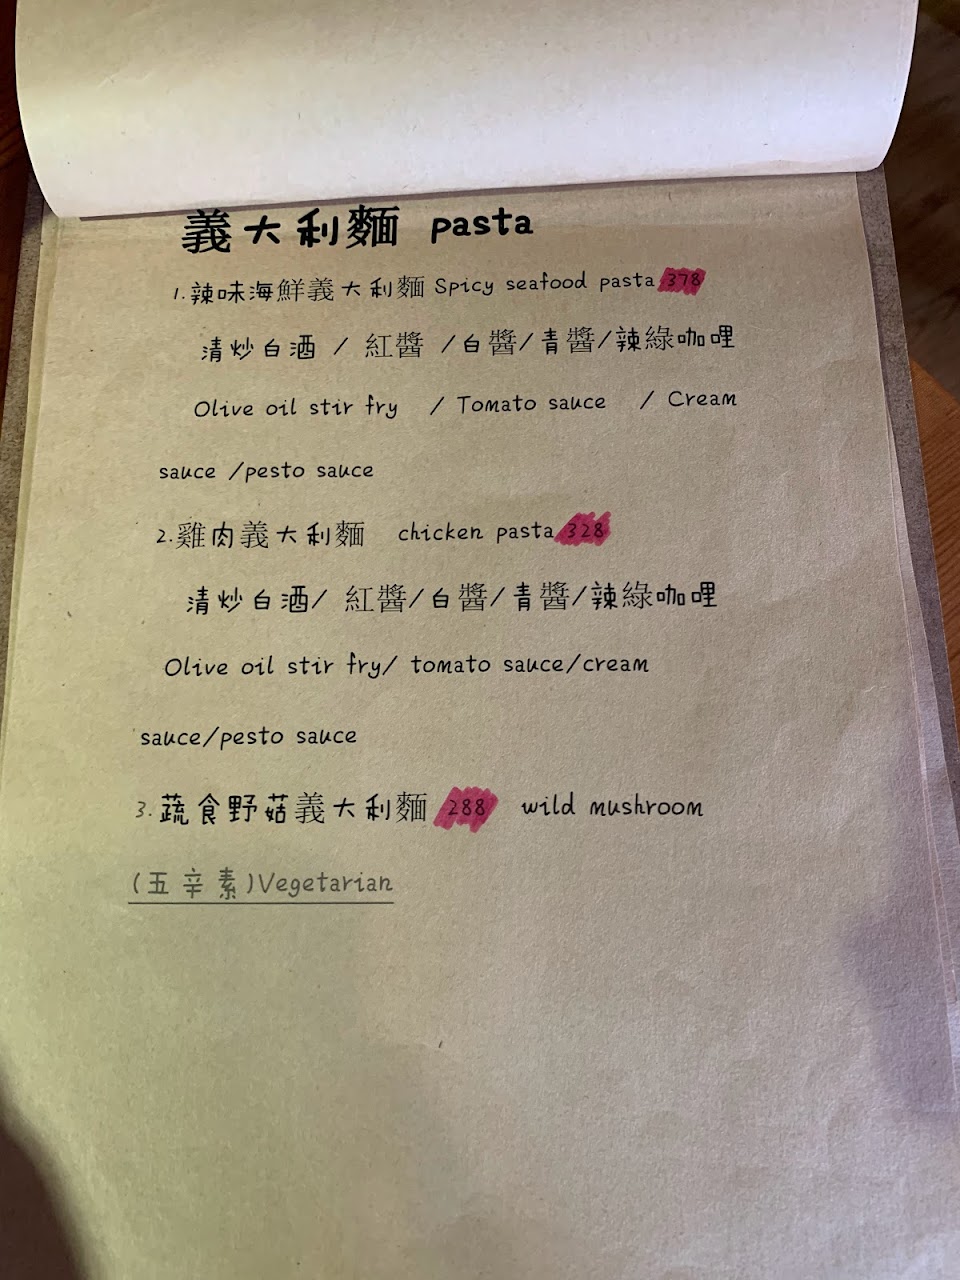 義大利麵 pasta
1.辣味海鮮義大利麵 Spicy seafood pasta 378
清炒白酒 / 紅醬 /白醬/青醬/辣綠咖哩
Olive oil stir fry / Tomato sauce / Cream
sauce /pesto sauce
2.雞肉義大利麵 chicken pasta 328
清炒白酒/ 紅醬/白醬/青醬/辣綠咖哩
Olive oil stir fry/ tomato sauce/cream
sauce/pesto sauce
3.蔬食野菇義大利麵 288 wild mushroom
(五辛素)Vegetarian